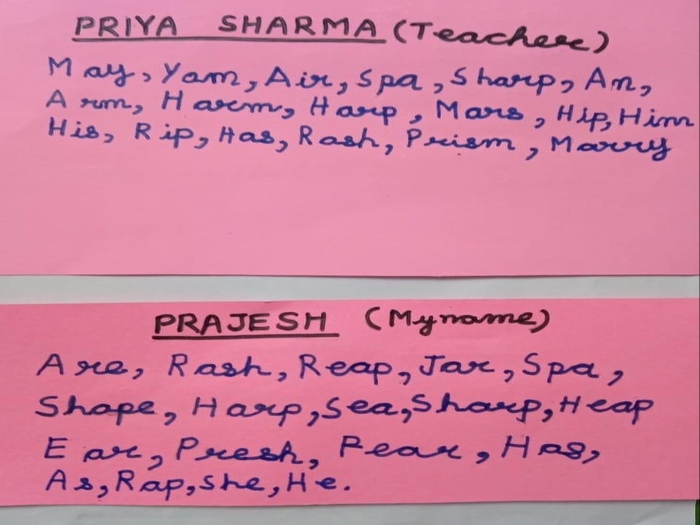 PRIYA SHARMA (Teacher)
May, Yam, Air, Spa, Sharp, Am,
Arm, Harm, Harp, Mars, Hip, Him
His, Rip, Has, Rash, Prism, Marry
PRAJESH (My name)
Are, Rash, Reap, Jar, Spa,
Shape, Harp, Sea, Sharp, Heap
Ear, Presh, Pear, Has,
As, Rap, She, He.